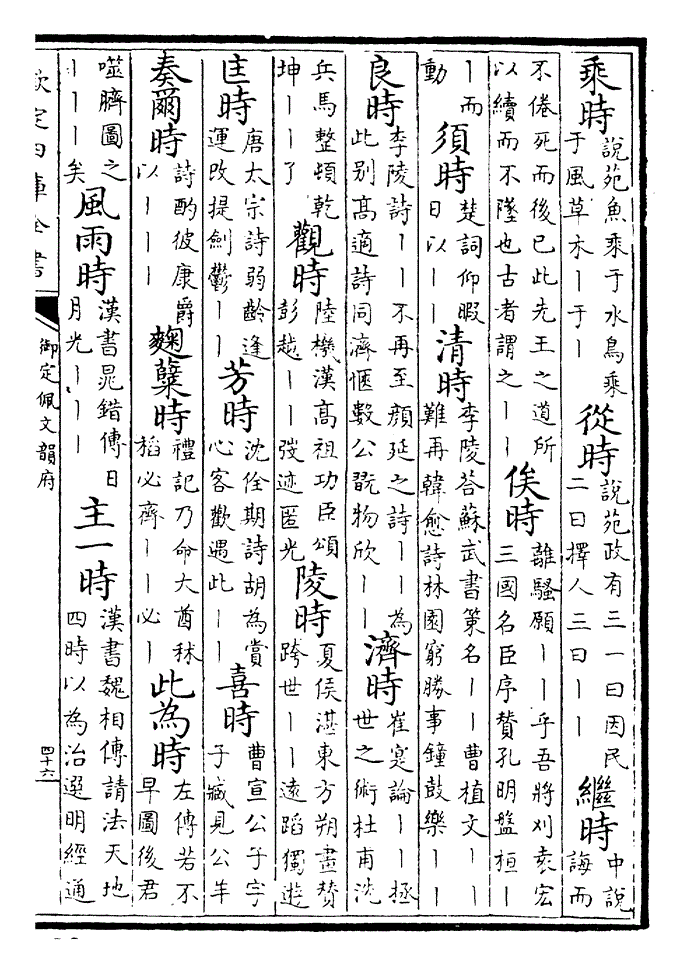 乘時
說苑魚乘于水鳥乘
于風草木丨于丨
從時
說苑政有三一曰因民
二曰擇人三曰丨丨
繼時
中說
誨而
不倦死而後已此先王之道所
以續而不墜也古者謂之丨丨
俟時
離騷願丨丨乎吾將刈袁宏
三國名臣序贊孔明盤桓丨
丨而
動
須時
楚詞仰暇
日以丨丨
清時
李陵荅蘇武書策名丨丨曹植文丨丨
難再韓愈詩林園窮勝事鐘鼓樂丨丨
良時
李陵詩丨丨不再至顔延之詩丨丨為
此别髙適詩同濟愜數公翫物欣丨丨
濟時
崔寔論丨丨拯
世之術杜甫洗
兵馬整頓乾
坤丨丨了
觀時
陸機漢髙祖功臣頌
彭越丨丨弢迹匿光
陵時
夏侯湛東方朔畫贊
跨世丨丨遠蹈獨遊
匡時
唐太宗詩弱齡逢
運改提劍鬱丨丨
芳時
沈佺期詩胡為賞
心客歡遇此丨丨
喜時
曹宣公子字
子臧見公羊
奏爾時
詩酌彼康爵
以丨丨丨
麴櫱時
禮記乃命大酋秫
稻必齊丨丨必丨
此為時
左傳若不
早圖後君
噬臍圖之
丨丨丨矣
風雨時
漢書晁錯傳日
月光丨丨丨
主一時
漢書魏相傳請法天地
四時以為治選明經通
欽定四庫全書
御定佩文韻府
四十六